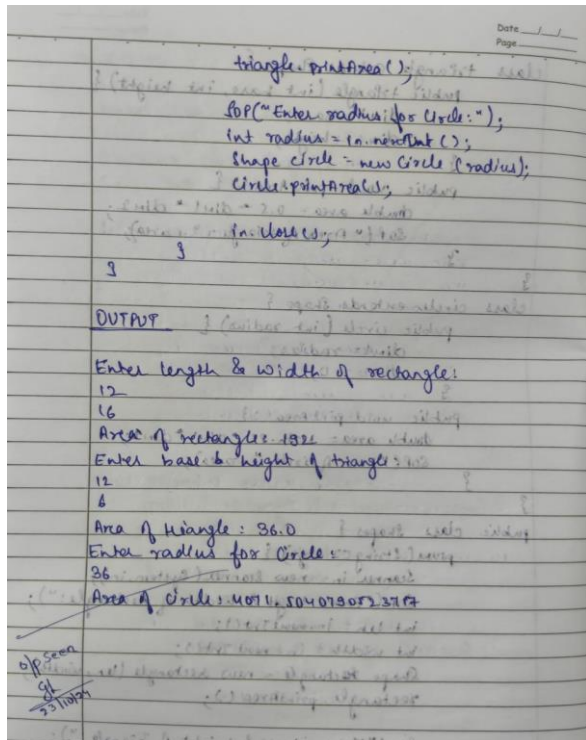 Date __/__/__
Page
triangle.printArea();
SOP("Enter radius for Circle:");
int radius = in.nextInt();
Shape circle = new Circle (radius);
Circle.printArea();
in.close();
}
}
OUTPUT
Enter length & width of rectangle:
12
16
Area of rectangle: 192
Enter base & height of triangle:
12
6
Area of triangle: 36.0
Enter radius for Circle:
36
Area of circle: 4071.5040790523717
o/p seen
23/10/24